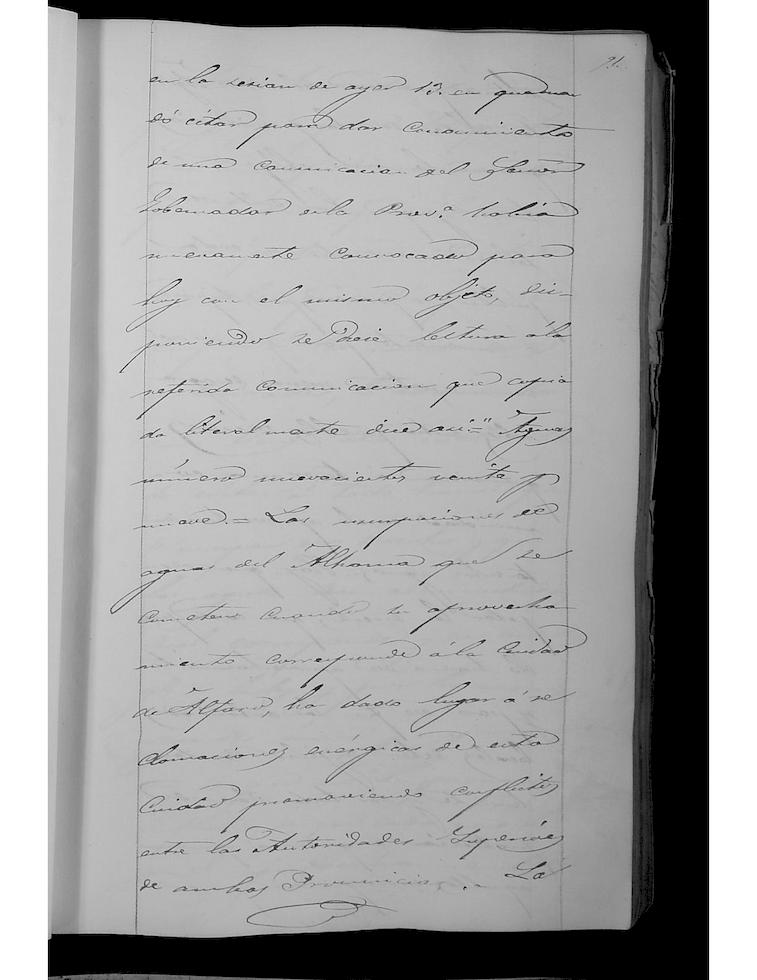 91.
en la sesion de ayer 13. en que man
dó citar para dar conocimiento
de una comunicacion del Señor
Gobernador de la Prov.ª habia
nuevamente convocado para
hoy con el mismo objeto, dis-
poniendo se diese lectura á la
referida comunicacion que copia
da literalmente dice asi = "Aguas
número nuevecientos veinte y
nueve. = Las usurpaciones de
aguas del Alhama que se
cometen cuando su aprovecha
miento corresponde á la Ciudad
de Alfaro, ha dado lugar á re
clamaciones enérgicas de esta
Ciudad promoviendo conflictos
entre las Autoridades Superiores
de ambas Provincias. La